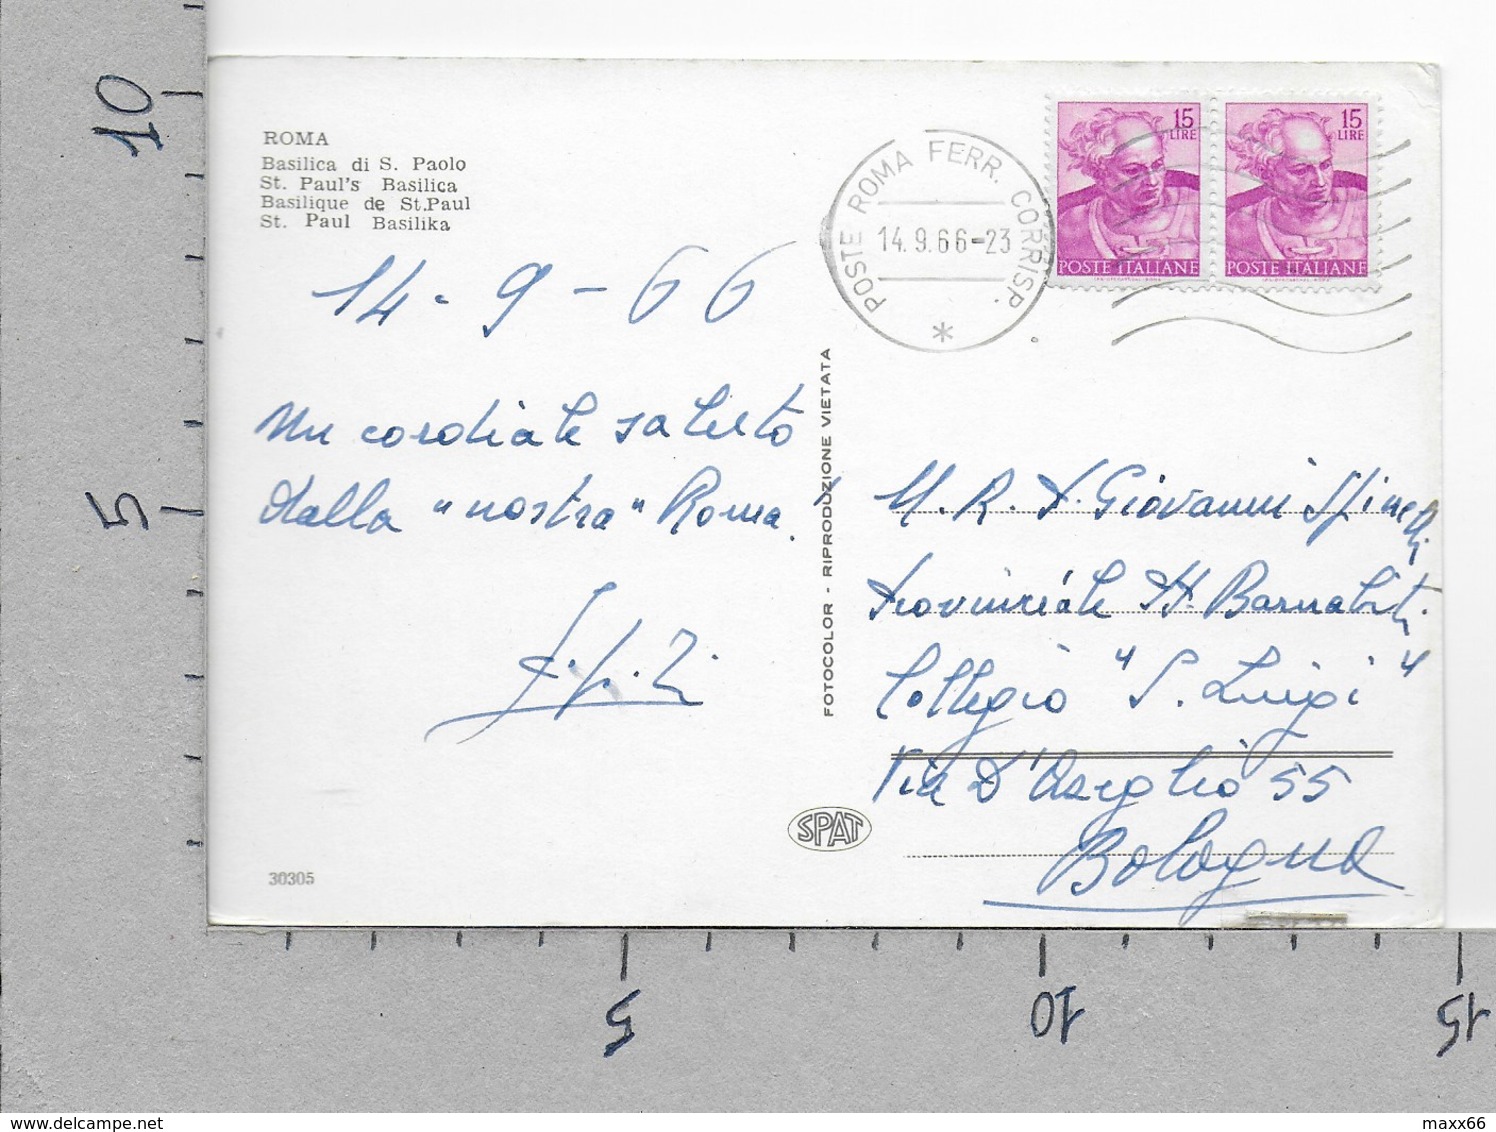 ROMA
Basilica di S. Paolo
St. Paul's Basilica
Basilique de St.Paul
St. Paul Basilika
14-9-66
Un cordiale saluto
dalla "nostra" Roma.
30305
FOTOCOLOR - RIPRODUZIONE VIETATA
SPAT
POSTE ROMA FERR. CORRISP.
14.9.66-23
*
15
LIRE
POSTE ITALIANE
15
LIRE
POSTE ITALIANE
M. R. P. Giovanni Spinelli
Provinciale PP. Barnabiti
Collegio "S. Luigi"
Via D'Azeglio 55
Bologna
10
5
5
10
15
maxx66